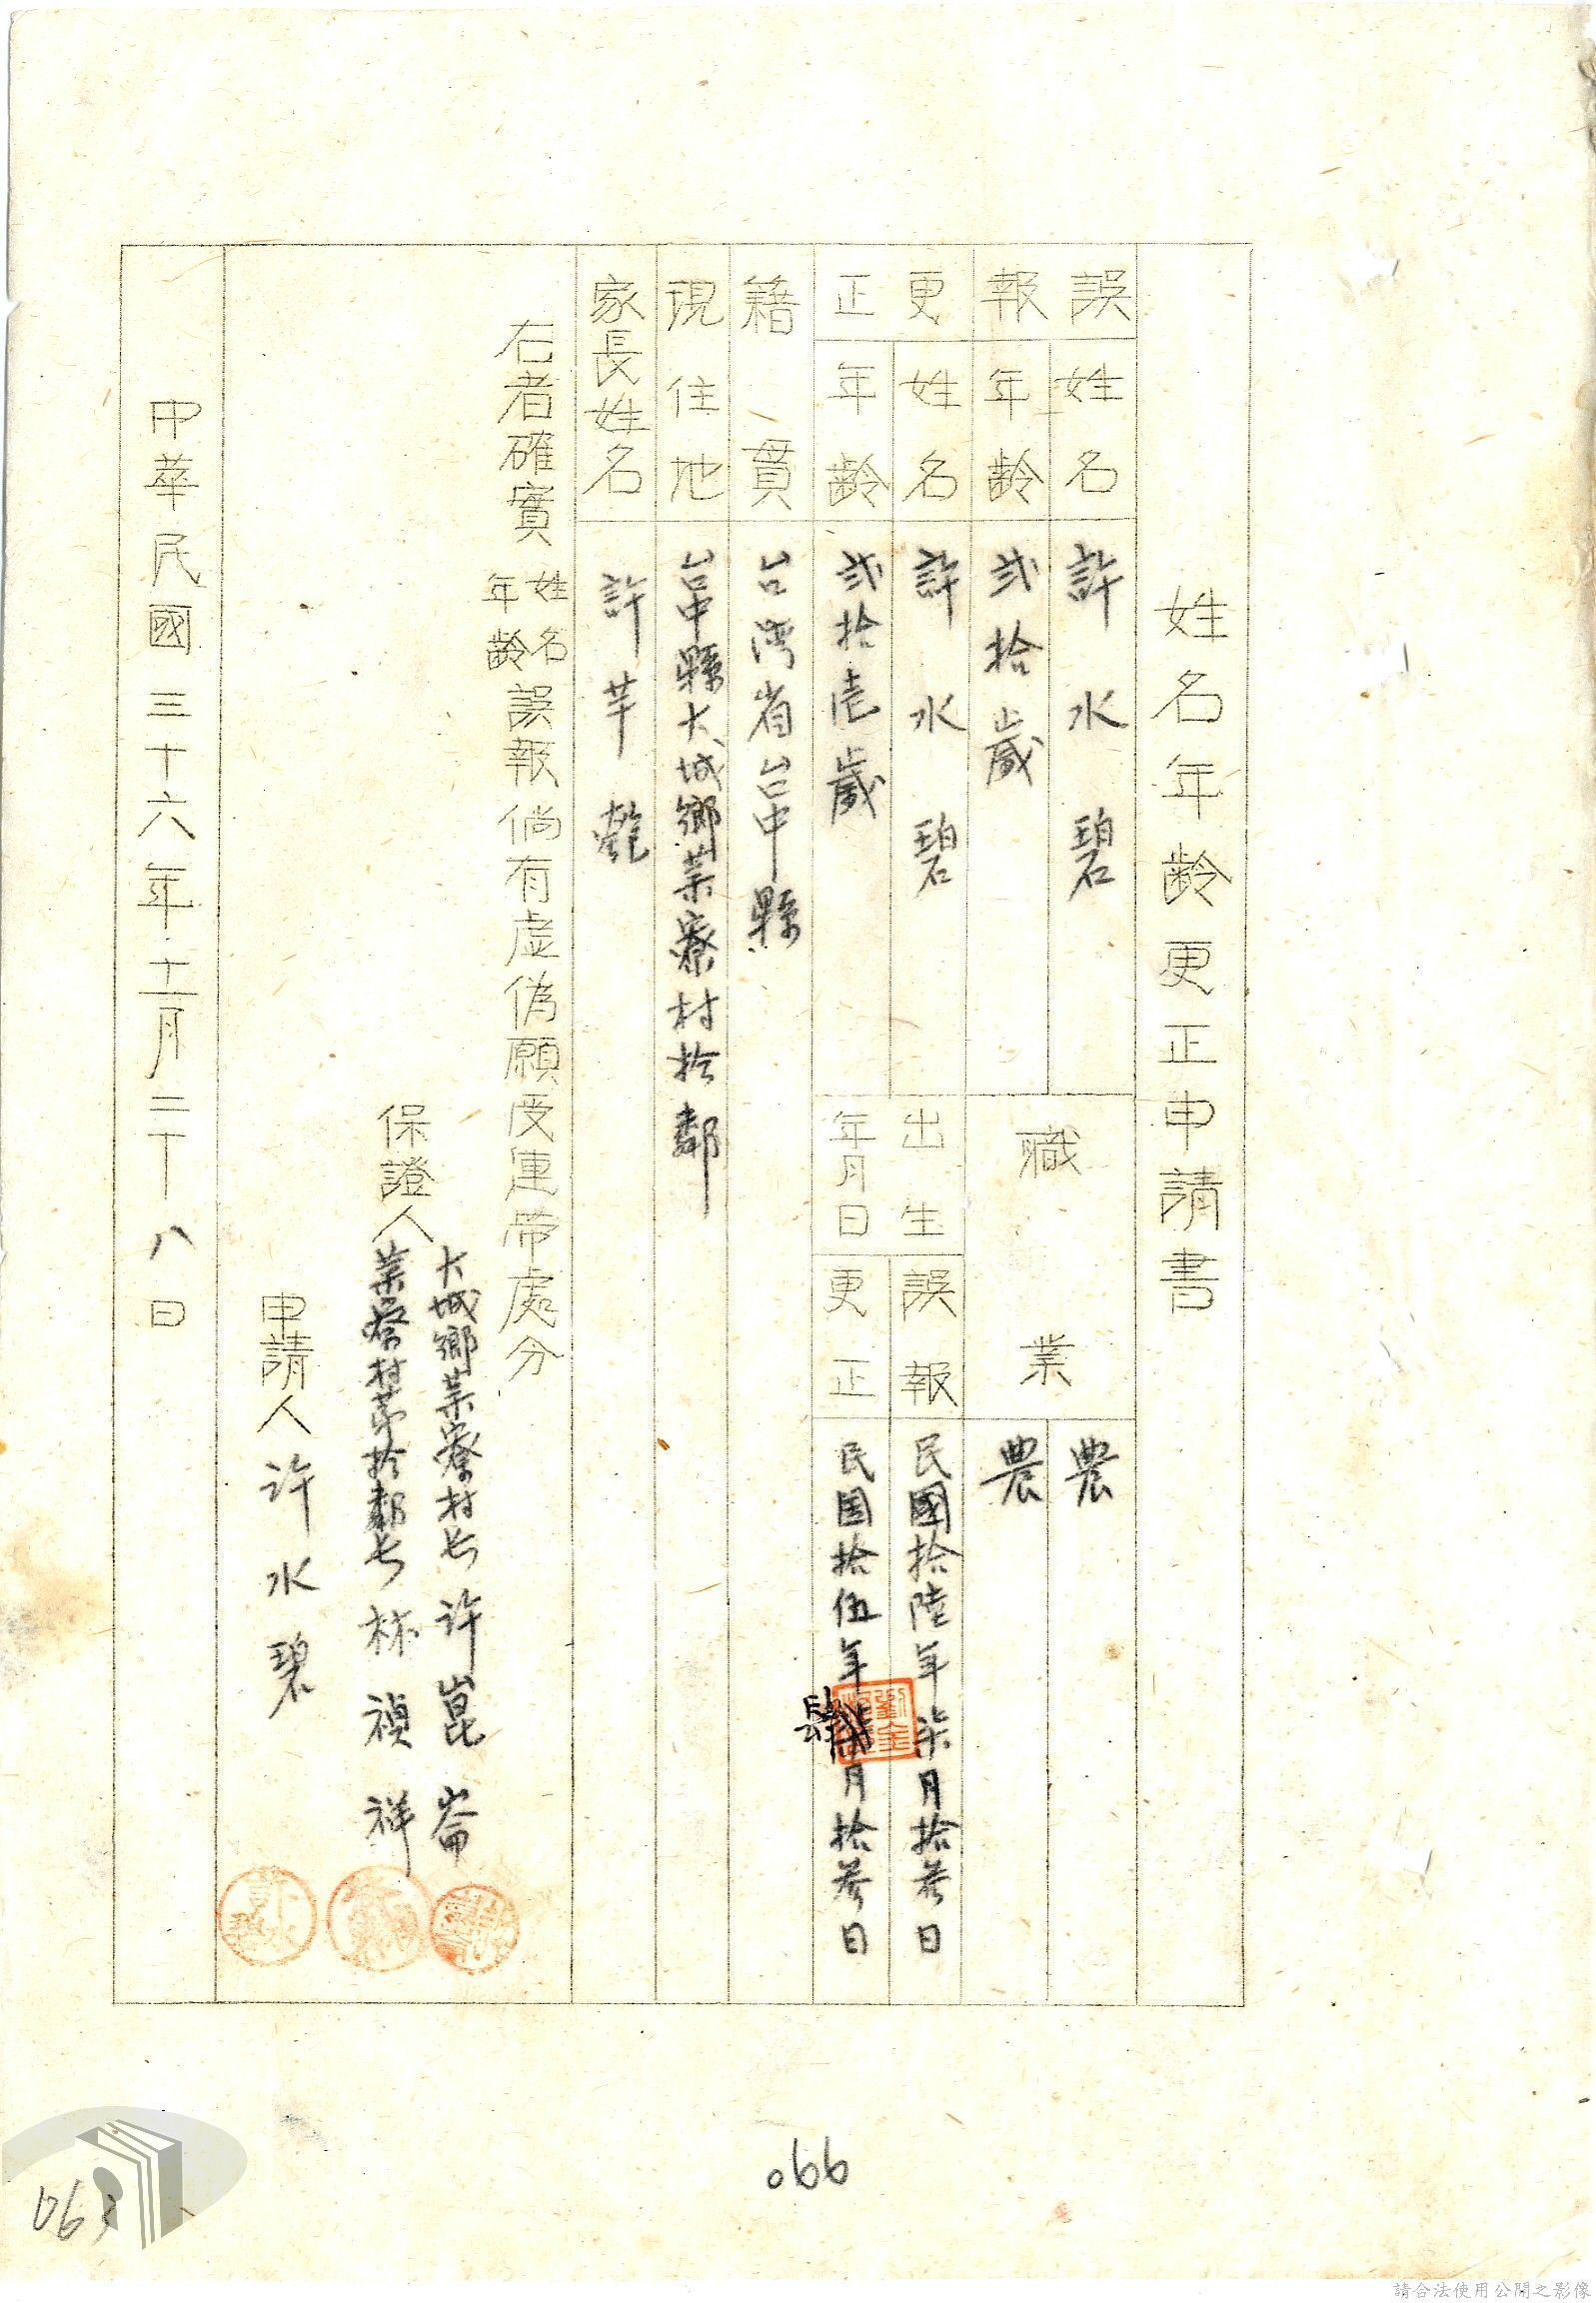 姓名年齡更正申請書
誤報
姓名
許水碧
年齡
貳拾歲
職業
農
農
更正
姓名
許水碧
年齡
貳拾壱歲
出生年月日
誤報
民國拾陸年柒月拾叁日
更正
民国拾伍年肆月拾叁日
籍貫
台湾省台中縣
現住地
台中縣大城鄉菜寮村拾鄰
家長姓名
許芊
右者確實姓名年齡誤報倘有虛偽願受連帶處分
保證人
大城鄉菜寮村長許崑崙
菜寮村第拾鄰長林禎祥
申請人許水碧
中華民國三十六年十一月二十八日
066
063
請合法使用公開之影像